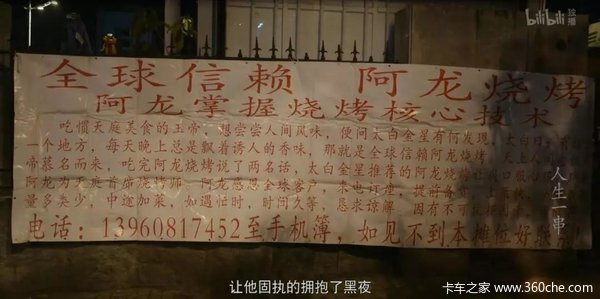 bilibili 独播
全球信赖 阿龙烧烤
阿龙掌握烧烤核心技术
吃惯天庭美食的玉帝,想尝尝人间风味,便问太白金星有何发现,太白曰:有
一个地方,每天晚上总是飘着诱人的香味,那就是全球信赖阿龙烧烤
帝慕名而来,吃完阿龙烧烤说了两名话,太白金星推荐的阿龙烧烤让
阿龙为天庭首席烧烤师 阿龙感恩全球客户 来电订建 提前备
量多类少,中途加菜,如遇忙时,时间久等,恳求谅解 因有不可
电话:13960817452至手机簿,如见不到本摊位好
人生一串
让他固执的拥抱了黑夜
卡车之家 www.360che.com